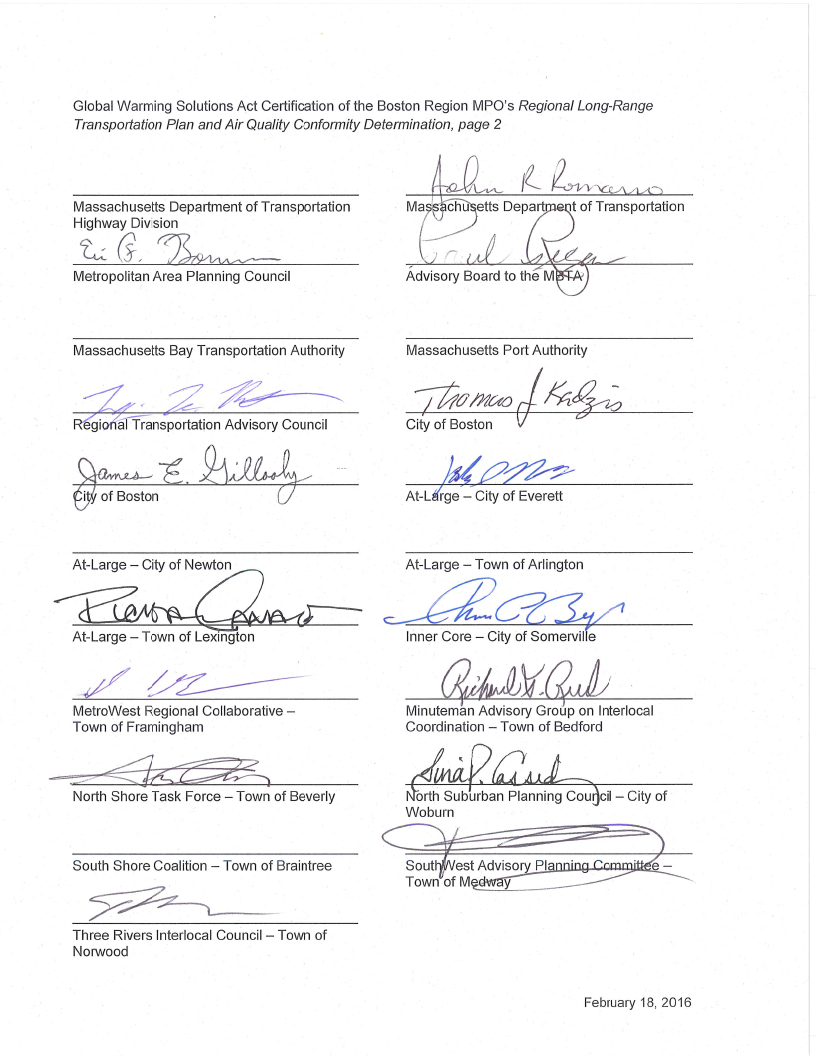 Global Warming Solutions Act Certification of the Boston Region MPO's Regional Long-Range
Transportation Plan and Air Quality Conformity Determination, page 2
John R Romano
Massachusetts Department of Transportation
Highway Division
Massachusetts Department of Transportation
Eric G.
Paul
Metropolitan Area Planning Council
Advisory Board to the MBTA
Massachusetts Bay Transportation Authority
Massachusetts Port Authority
Thomas J Kadzis
Regional Transportation Advisory Council
City of Boston
James E. Gillooly
City of Boston
At-Large – City of Everett
At-Large – City of Newton
At-Large – Town of Arlington
At-Large – Town of Lexington
Inner Core – City of Somerville
Richard
MetroWest Regional Collaborative –
Town of Framingham
Minuteman Advisory Group on Interlocal
Coordination – Town of Bedford
Tina P. Cassid
North Shore Task Force – Town of Beverly
North Suburban Planning Council – City of
Woburn
South Shore Coalition – Town of Braintree
SouthWest Advisory Planning Committee –
Town of Medway
Three Rivers Interlocal Council – Town of
Norwood
February 18, 2016